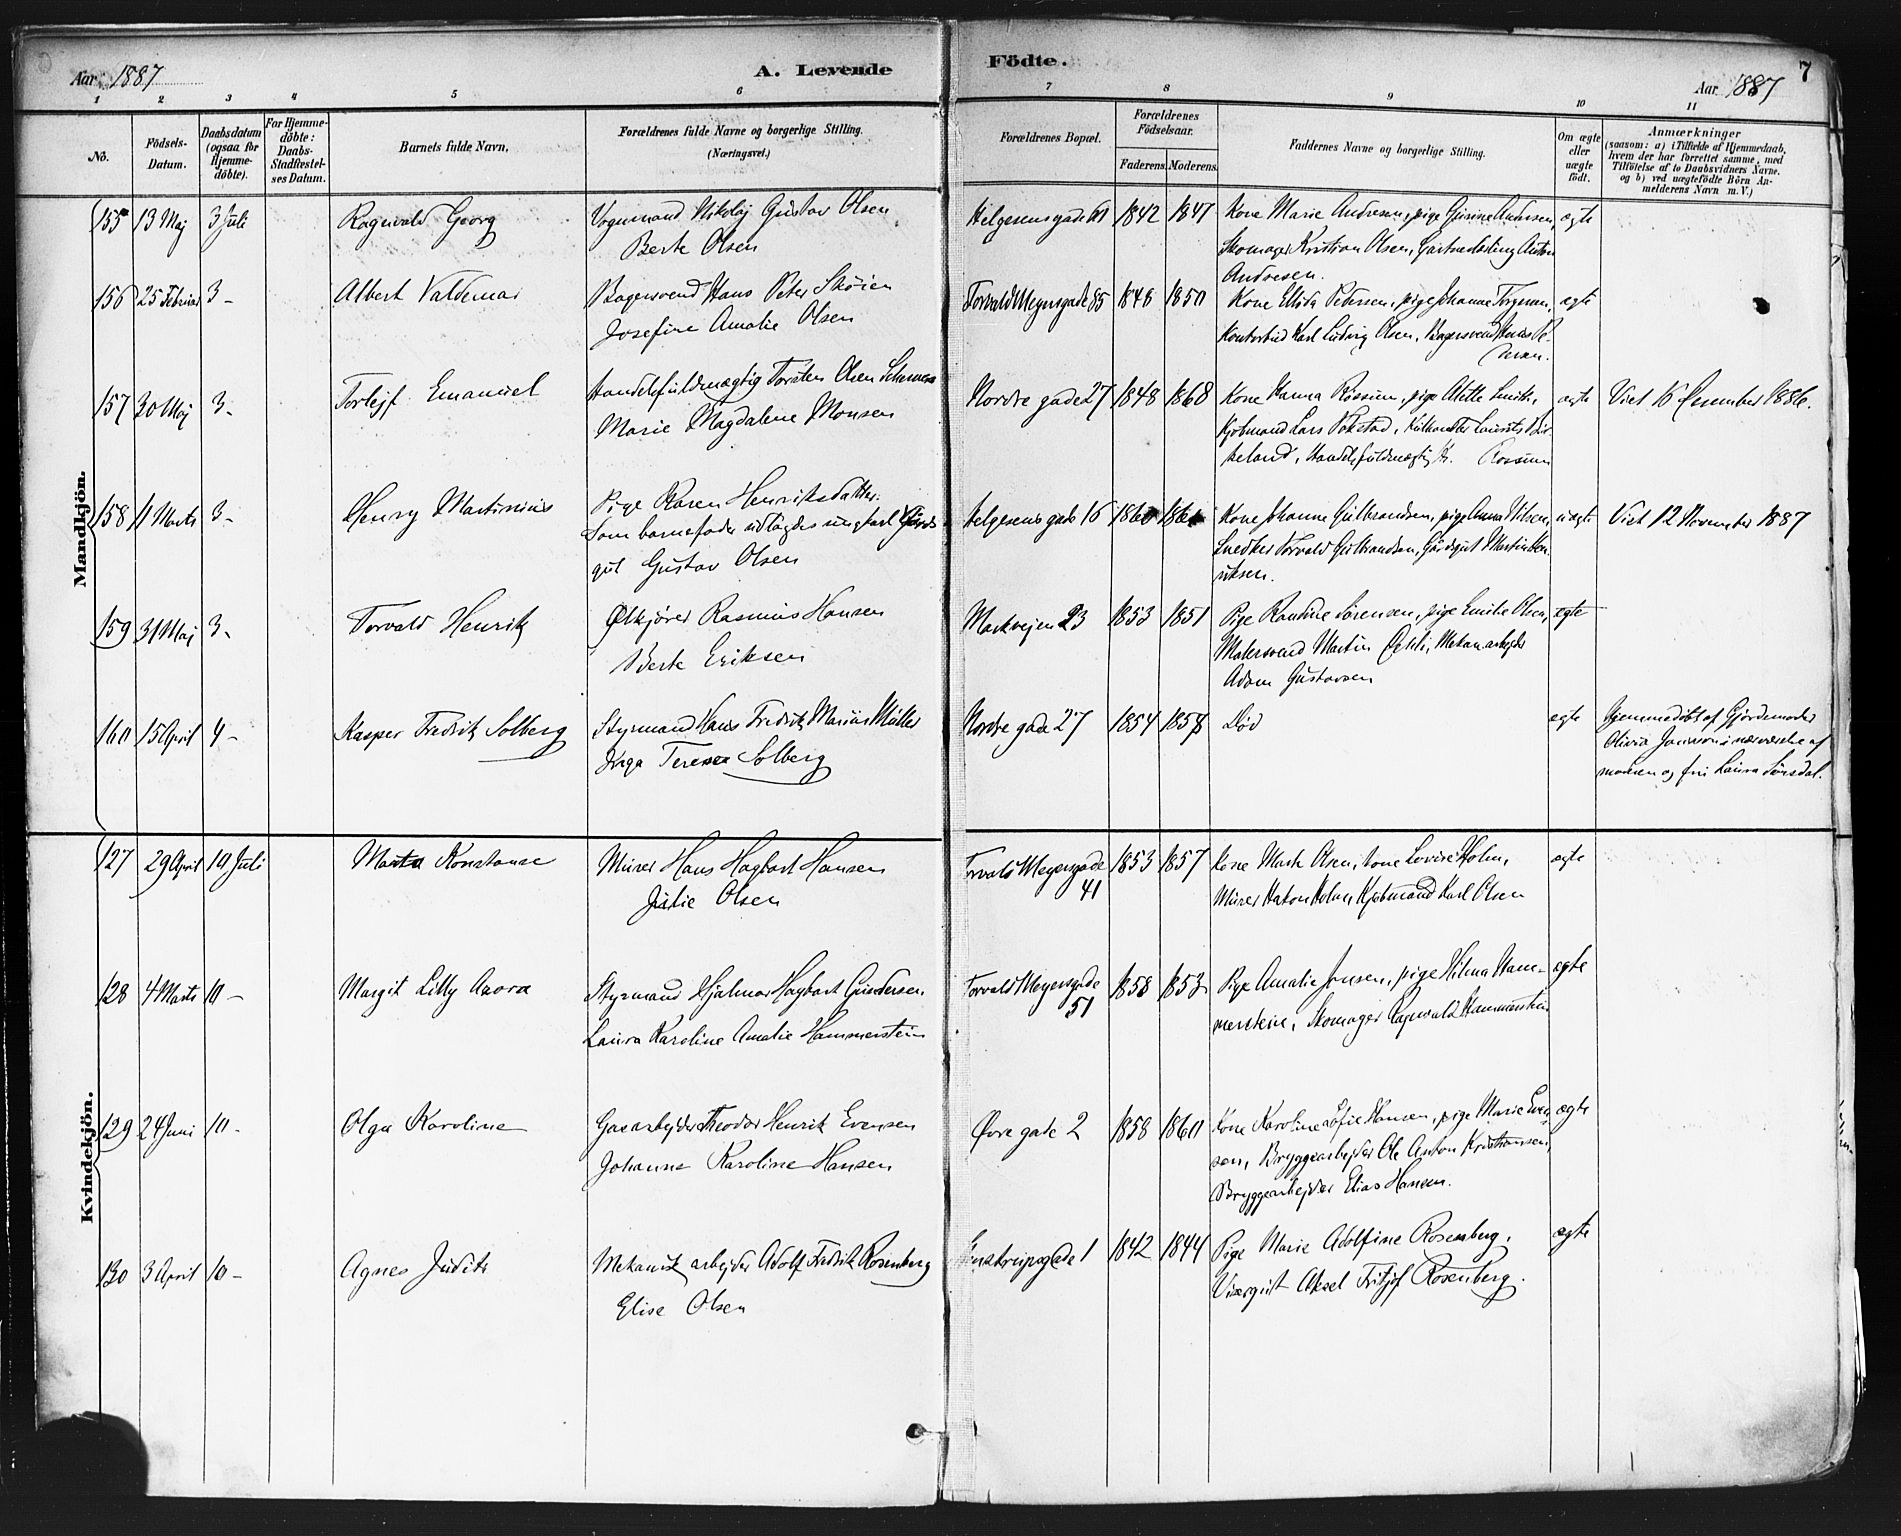 Aar 1887
A. Levende
Födte.
7
Aar 1887
1 2 3 4 5 6 7 8 9 10 11
No.
Födsels-
Datum.
Daabsdatum
(ogsaa for
Hjemme-
döbte).
For Hjemme-
döbte:
Daabs-
Stadfæstel-
ses Datum.
Barnets fulde Navn.
Forældrenes fulde Navne og borgerlige Stilling.
(Næringsvei.)
Forældrenes Bopæl.
Forældrenes
Födselsaar.
Faderens. Moderens.
Faddernes Navne og borgerlige Stilling.
Om ægte
eller
uægte
födt.
Anmærkninger
(saasom: a) i Tilfælde af Hjemmedaab,
hvem der har forrettet samme, med
Tilföielse af to Daabsvidners Navne.
og b) ved uægtefödte Börn An-
melderens Navn m. V.)
Mandkjön.
155 13 Maj 3 Juli Ragnvald Georg Vognmand Nikolaj Gustav Olsen
Berte Olsen
Helgesens gade 1842 1847 Kone Marie Andresen, pige Andersen, ægte
Skomager Kristian Olsen, Anton
Andresen.
156 25 Februar 3 - Albert Valdemar Bagersvend Hans Peter Skøien
Josefine Amalie Olsen
Torvald Meyersgade 85 1848 1850 Kone Petersen, pige Johanne ægte
Kontorbud Karl Ludvig Olsen, Bagersvend
157 30 Maj 3 - Torlejf Emanuel Handelsfuldmægtig Torsten Olsen
Marie Magdalene Monsen
Nordre gade 27 1848 1868 Kone Hanna pige ægte Viet 16 December 1886.
Kjøbmand Lars
Handelsfuldmægtig
158 11 Marts 3 - Henry Martinius Pige Karen Henriksdatter.
Som barnefader udlagdes ungkarl Gårds
gut Gustav Olsen
Helgesens gade 16 Kone Johanne Gulbrandsen, pige Anna Nilsen, uægte Viet 12 November 1887
Snedker Torvald Gulbrandsen, Gårdsgut Martin Hen
riksen.
159 31 Maj 3 - Torvald Henrik Ølkjører Rasmus Hansen
Berte Eriksen
Markvejen 23 1853 1851 Pige Sørensen, pige Emilie Olsen, ægte
Malersvend Martin Mekan. arbejder
Adam Gustavsen
160 15 April 4 - Kasper Fredrik Solberg Styrmand Hans Fredrik Marius Müller
Inga Terese Solberg
Nordre gade 27 1854 1858 Død ægte Hjemmedøbt af Gjordemoder
Olivia i nærværelse af
moderen og frü Laura
Kvindekjön.
127 29 April 10 Juli Marta Konstanse Murer Hans Hagbart Hansen
Julie Olsen
Torvald Meyersgade
41
1853 1857 Kone Olsen, kone Lovise Holm, ægte
Murer Hakon Holm, Kjøbmand Karl Olsen
128 4 Marts 10 - Margit Lilly Aurora Styrmand Hjalmar Hagbart Gundersen
Laura Karoline Amalie Hammerstein
Torvald Meyersgade
51
1858 1853 Pige Amalie Jensen, pige Hilma Ham- ægte
merstein, Skomager Ragnvald Hammerstein
129 24 Juni 10 - Olga Karoline Gasarbejder Theodor Henrik Evensen
Johanne Karoline Hansen
Øvre gade 2 1858 1860 Kone Karoline Sofie Hansen, pige Marie Even ægte
sen, Bryggearbejder Ole Anton Kristiansen,
Bryggearbejder Elias Hansen.
130 3 April 10 - Agnes Judith Mekanisk arbejder Adolf Fredrik Rosenberg
Elise Olsen
1842 1844 Pige Marie Adolfine Rosenberg, ægte
Visergut Aksel Fritjof Rosenberg.